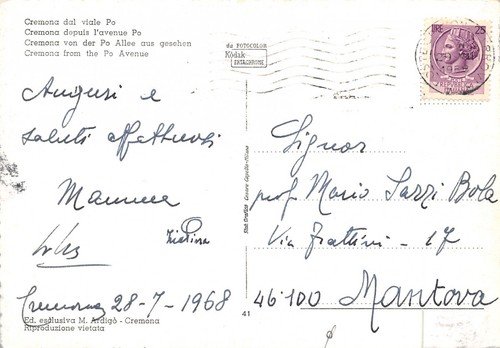 Cremona dal viale Po
Cremona depuis l'avenue Po
Cremona von der Po Allee aus gesehen
Cremona from the Po Avenue
da FOTOCOLOR
Kodak
EKTACHROME
LIRE 25
Auguri e
saluti affettuosi
Cremona 28-7-1968
Ed. esclusiva M. Ardigò - Cremona
Riproduzione vietata
41
Signor
prof. Mario
Via Frattini - 17
46100 Mantova